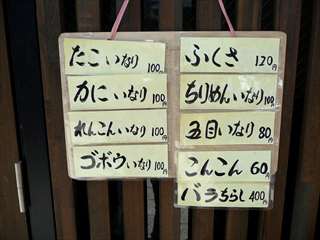 たこいなり 100円
かにいなり 100円
れんこんいなり 100円
ゴボウいなり 100円
ふくさ 120円
ちりめんいなり 100円
五目いなり 80円
こんこん 60円
バラちらし 400円